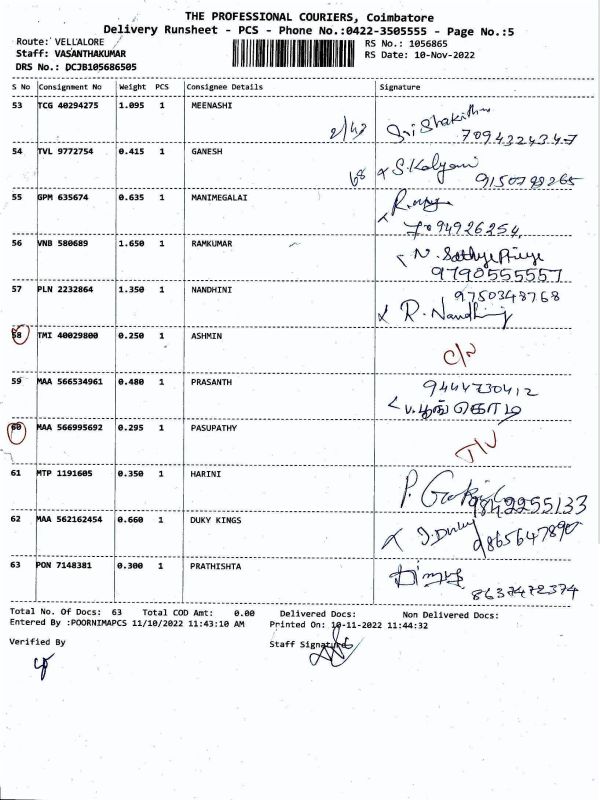 THE PROFESSIONAL COURIERS, Coimbatore
Delivery Runsheet - PCS - Phone No.:0422-3505555 - Page No.:5
Route: VELLALORE
RS No.: 1056865
Staff: VASANTHAKUMAR
RS Date: 10-Nov-2022
DRS No.: DCJB105686505
S No Consignment No Weight PCS Consignee Details Signature
53 TCG 40294275 1.095 1 MEENASHI
2/43 Sri Shakithi
7094324347
54 TVL 9772754 0.415 1 GANESH
68 x S.Kalyani
9150799265
55 GPM 635674 0.635 1 MANIMEGALAI
56 VNB 580689 1.650 1 RAMKUMAR
N. Sathya Priya
9790555557
57 PLN 2232864 1.350 1 NANDHINI
9750348768
x R. Nandhini
58 TMI 40029800 0.250 1 ASHMIN
C/N
59 MAA 566534961 0.480 1 PRASANTH
9444730412
V.பூங்கொடி
60 MAA 566995692 0.295 1 PASUPATHY
61 MTP 1191605 0.350 1 HARINI
9842255133
62 MAA 562162454 0.660 1 DUKY KINGS
9865647890
63 PON 7148381 0.300 1 PRATHISHTA
8637472374
Total No. Of Docs: 63 Total COD Amt: 0.00 Delivered Docs: Non Delivered Docs:
Entered By :POORNIMAPCS 11/10/2022 11:43:10 AM Printed On: 10-11-2022 11:44:32
Verified By Staff Signature